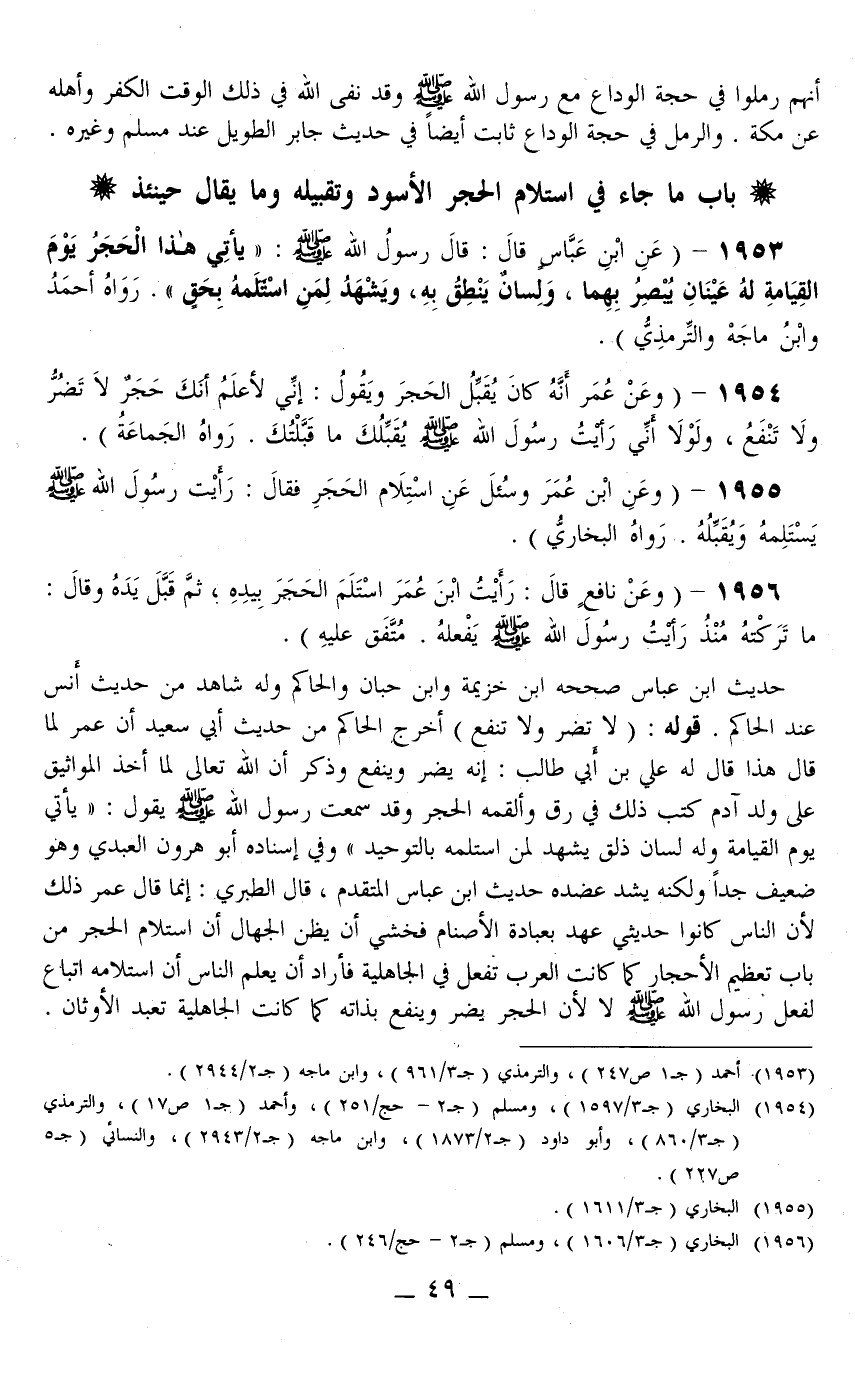 أنهم رملوا في حجة الوداع مع رسول الله ﷺ وقد نفى الله في ذلك الوقت الكفر وأهله
عن مكة . والرمل في حجة الوداع ثابت أيضاً في حديث جابر الطويل عند مسلم وغيره .
❋ باب ما جاء في استلام الحجر الأسود وتقبيله وما يقال حينئذ ❋
١٩٥٣ – ( عَنِ ابْنِ عَبَّاسٍ قالَ : قالَ رسولُ الله ﷺ : « يأتي هٰذا الْحَجَرُ يَوْمَ
القِيَامةِ لهُ عَيْنَانِ يُبْصِرُ بِهِما ، وَلِسانٌ يَنْطِقُ بِهِ، ويَشْهَدُ لِمَنِ اسْتَلَمهُ بِحَقٍ » . رَوَاهُ أحمَدُ
وابْنُ ماجَهْ والتِّرمذِيُّ ) .
١٩٥٤ – ( وعَنْ عُمَر أَنَّهُ كانَ يُقَبِّلُ الحَجرَ ويَقُولُ : إنِّي لأعلَمُ أنَكَ حَجَرٌ لاَ تَضُرُّ
ولَا تَنْفَعُ ، ولَوْلَا أَنِّي رَأيْتُ رسُولَ الله ﷺ يُقَبِّلُكَ ما قَبَّلْتُكَ . رَواهُ الجَماعَةُ ) .
١٩٥٥ – ( وعَنِ ابْن عُمَرَ وسُئلَ عَنِ اسْتِلَام الحَجَرِ فقالَ : رَأَيْت رسُولَ الله ﷺ
يَسْتَلِمهُ وَيُقَبِّلُهُ . رَواهُ البخاريُّ ) .
١٩٥٦ – ( وعَنْ نافعٍ قالَ : رَأَيْتُ ابْنَ عُمَرَ اسْتَلَمَ الحَجَرَ بِيدِهِ ، ثمَّ قَبَّلَ يَدَهُ وقالَ :
ما تَرَكْتهُ مُنْذُ رَأيْتُ رسُولَ الله ﷺ يَفْعلهُ . مُتَّفَق عليهِ ) .
حديث ابن عباس صححه ابن خزيمة وابن حبان والحاكم وله شاهد من حديث أَنس
عند الحاكم . قوله : ( لا تضر ولا تنفع ) أخرج الحاكم من حديث أبي سعيد أن عمر لما
قال هذا قال له علي بن أَبي طالب : إنه يضر وينفع وذكر أن الله تعالى لما أخذ المواثيق
على ولد آدم كتب ذلك في رق وألقمه الحجر وقد سمعت رسول الله ﷺ يقول : « يأتي
يوم القيامة وله لسان ذلق يشهد لمن استلمه بالتوحيد » وفي إسناده أبو هرون العبدي وهو
ضعيف جداً ولكنه يشد عضده حديث ابن عباس المتقدم ، قال الطبري : إنما قال عمر ذلك
لأن الناس كانوا حديثي عهد بعبادة الأصنام فخشي أن يظن الجهال أن استلام الحجر من
باب تعظيم الأحجار كما كانت العرب تفعل في الجاهلية فأراد أن يعلم الناس أن استلامه اتباع
لفعل رسول الله ﷺ لا لأن الحجر يضر وينفع بذاته كما كانت الجاهلية تعبد الأوثان .
(١٩٥٣) أحمد ( جـ١ ص٢٤٧ ) ، والترمذي ( جـ٩٦١/٣ ) ، وابن ماجه ( جـ٢٩٤٤/٢ ) .
(١٩٥٤) البخاري ( جـ١٥٩٧/٣ ) ، ومسلم ( جـ٢ – حج/٢٥١ ) ، وأحمد ( جـ١ ص١٧ ) ، والترمذي
( جـ٨٦٠/٣ ) ، وأبو داود ( جـ١٨٧٣/٢ ) ، وابن ماجه ( جـ٢٩٤٣/٢ ) ، والنسائي ( جـ٥
ص٢٢٧ ) .
(١٩٥٥) البخاري ( جـ١٦١١/٣ ) .
(١٩٥٦) البخاري ( جـ١٦٠٦/٣ ) ، ومسلم ( جـ٢ – حج/٢٤٦ ) .
– ٤٩ –